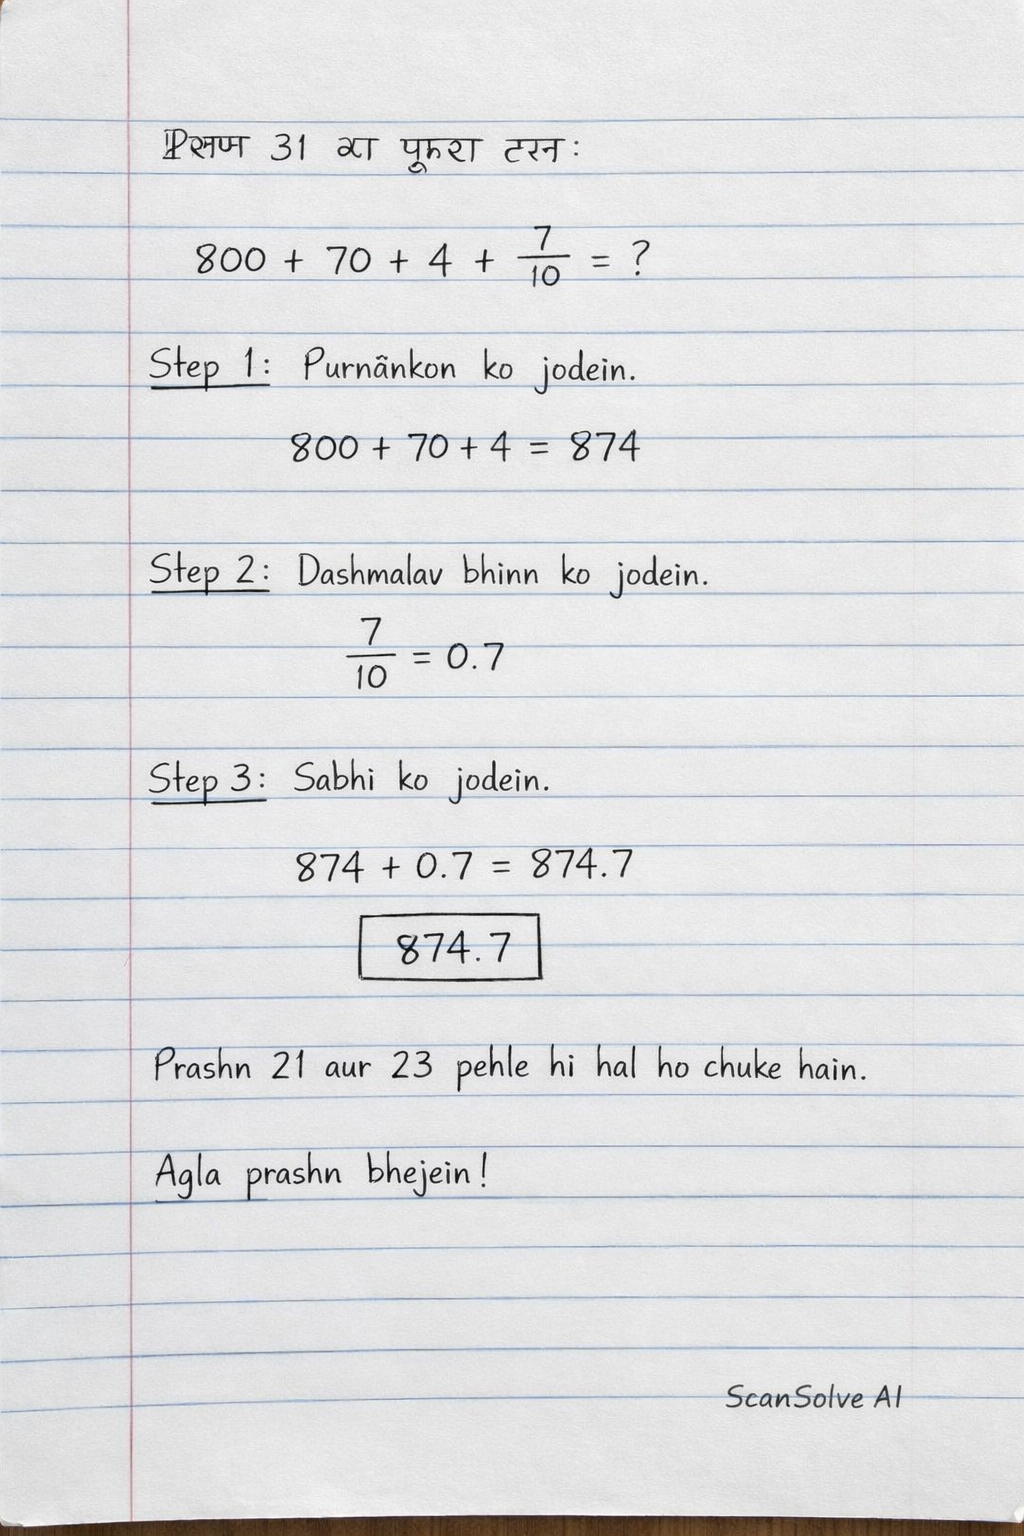 31
800 + 70 + 4 + 7/10 = ?
Step 1: Purnãnkon ko jodein.
800 + 70 + 4 = 874
Step 2: Dashmalav bhinn ko jodein.
7/10 = 0.7
Step 3: Sabhi ko jodein.
874 + 0.7 = 874.7
874.7
Prashn 21 aur 23 pehle hi hal ho chuke hain.
Agla prashn bhejein!
ScanSolve AI